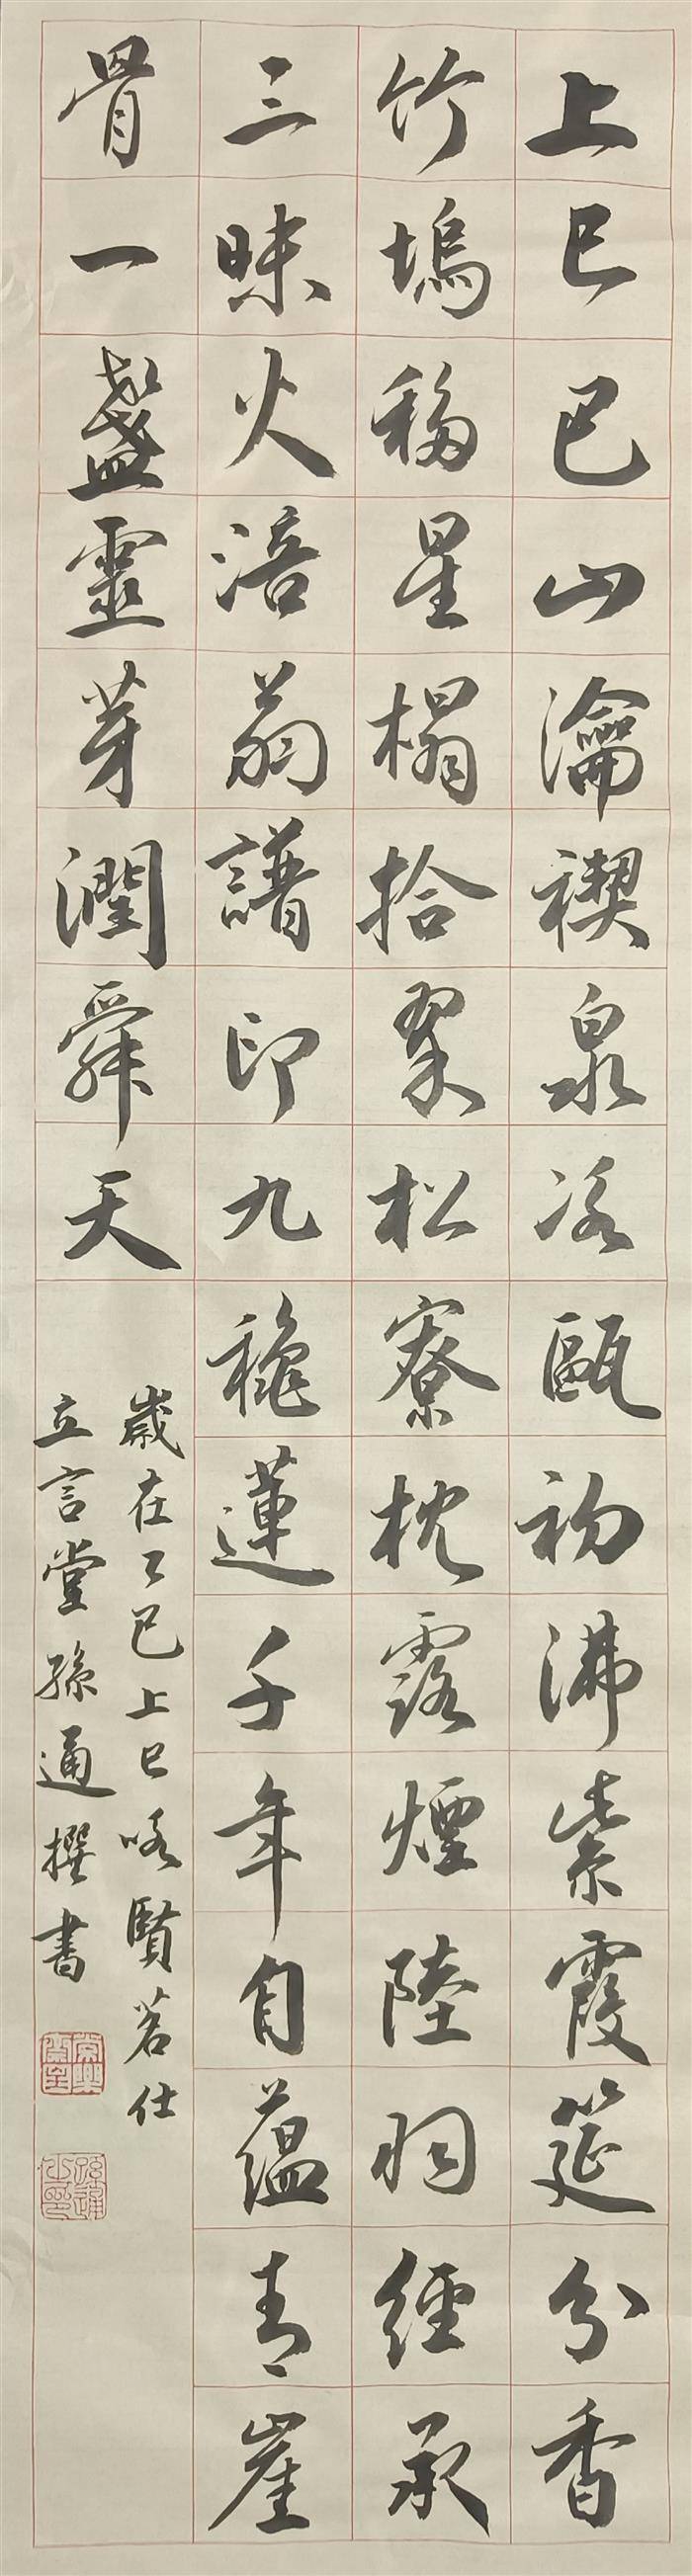 上巳巴山瀹禊泉冰甌初沸紫霞筵分香
竹塢移星榻拾翠松寮枕露煙陸羽經承
三昧火涪翁譜印九穐蓮千年自蘊青崖
骨一盞靈芽潤舜天
歲在乙巳上巳咏賢茗仕
立言堂孫通撰書